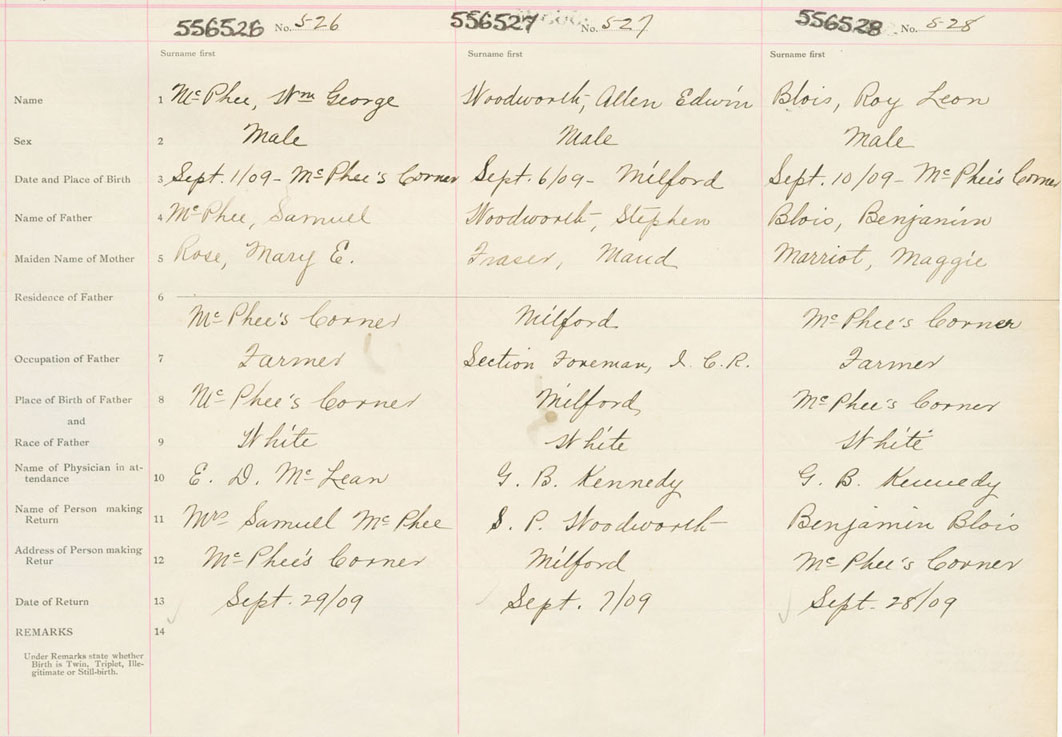 556526 No. 526 556527 No. 527 556528 No. 528
Surname first Surname first Surname first
Name 1 McPhee, Wm George Woodworth, Allen Edwin Blois, Roy Leon
Sex 2 Male Male Male
Date and Place of Birth 3 Sept. 1/09 - McPhee's Corner Sept. 6/09 - Milford Sept. 10/09 - McPhee's Corner
Name of Father 4 McPhee, Samuel Woodworth, Stephen Blois, Benjamin
Maiden Name of Mother 5 Rose, Mary E. Fraser, Maud Marriot, Maggie
Residence of Father 6
McPhee's Corner Milford McPhee's Corner
Occupation of Father 7 Farmer Section Foreman, I. C. R. Farmer
Place of Birth of Father 8 McPhee's Corner Milford McPhee's Corner
and
Race of Father 9 White White White
Name of Physician in at-
tendance 10 E. D. McLean G. B. Kennedy G. B. Kennedy
Name of Person making
Return 11 Mrs Samuel McPhee S. P. Woodworth Benjamin Blois
Address of Person making
Retur 12 McPhee's Corner Milford McPhee's Corner
Date of Return 13 Sept. 29/09 Sept. 7/09 Sept. 28/09
REMARKS 14
Under Remarks state whether
Birth is Twin, Triplet, Ille-
gitimate or Still-birth.